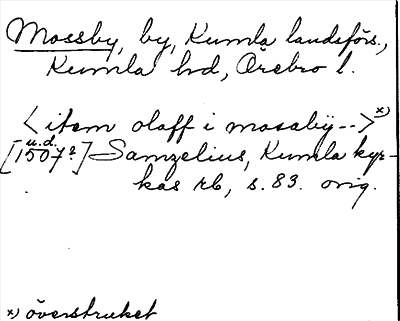 Mossby, by, Kumla landsförs.,
Kumla hd, Örebro l.
<item olaff i mosaby--> x)
u.d.
[1507?] Samzelius, Kumla kyr-
kas rb, s. 83. orig.
x) överstruket